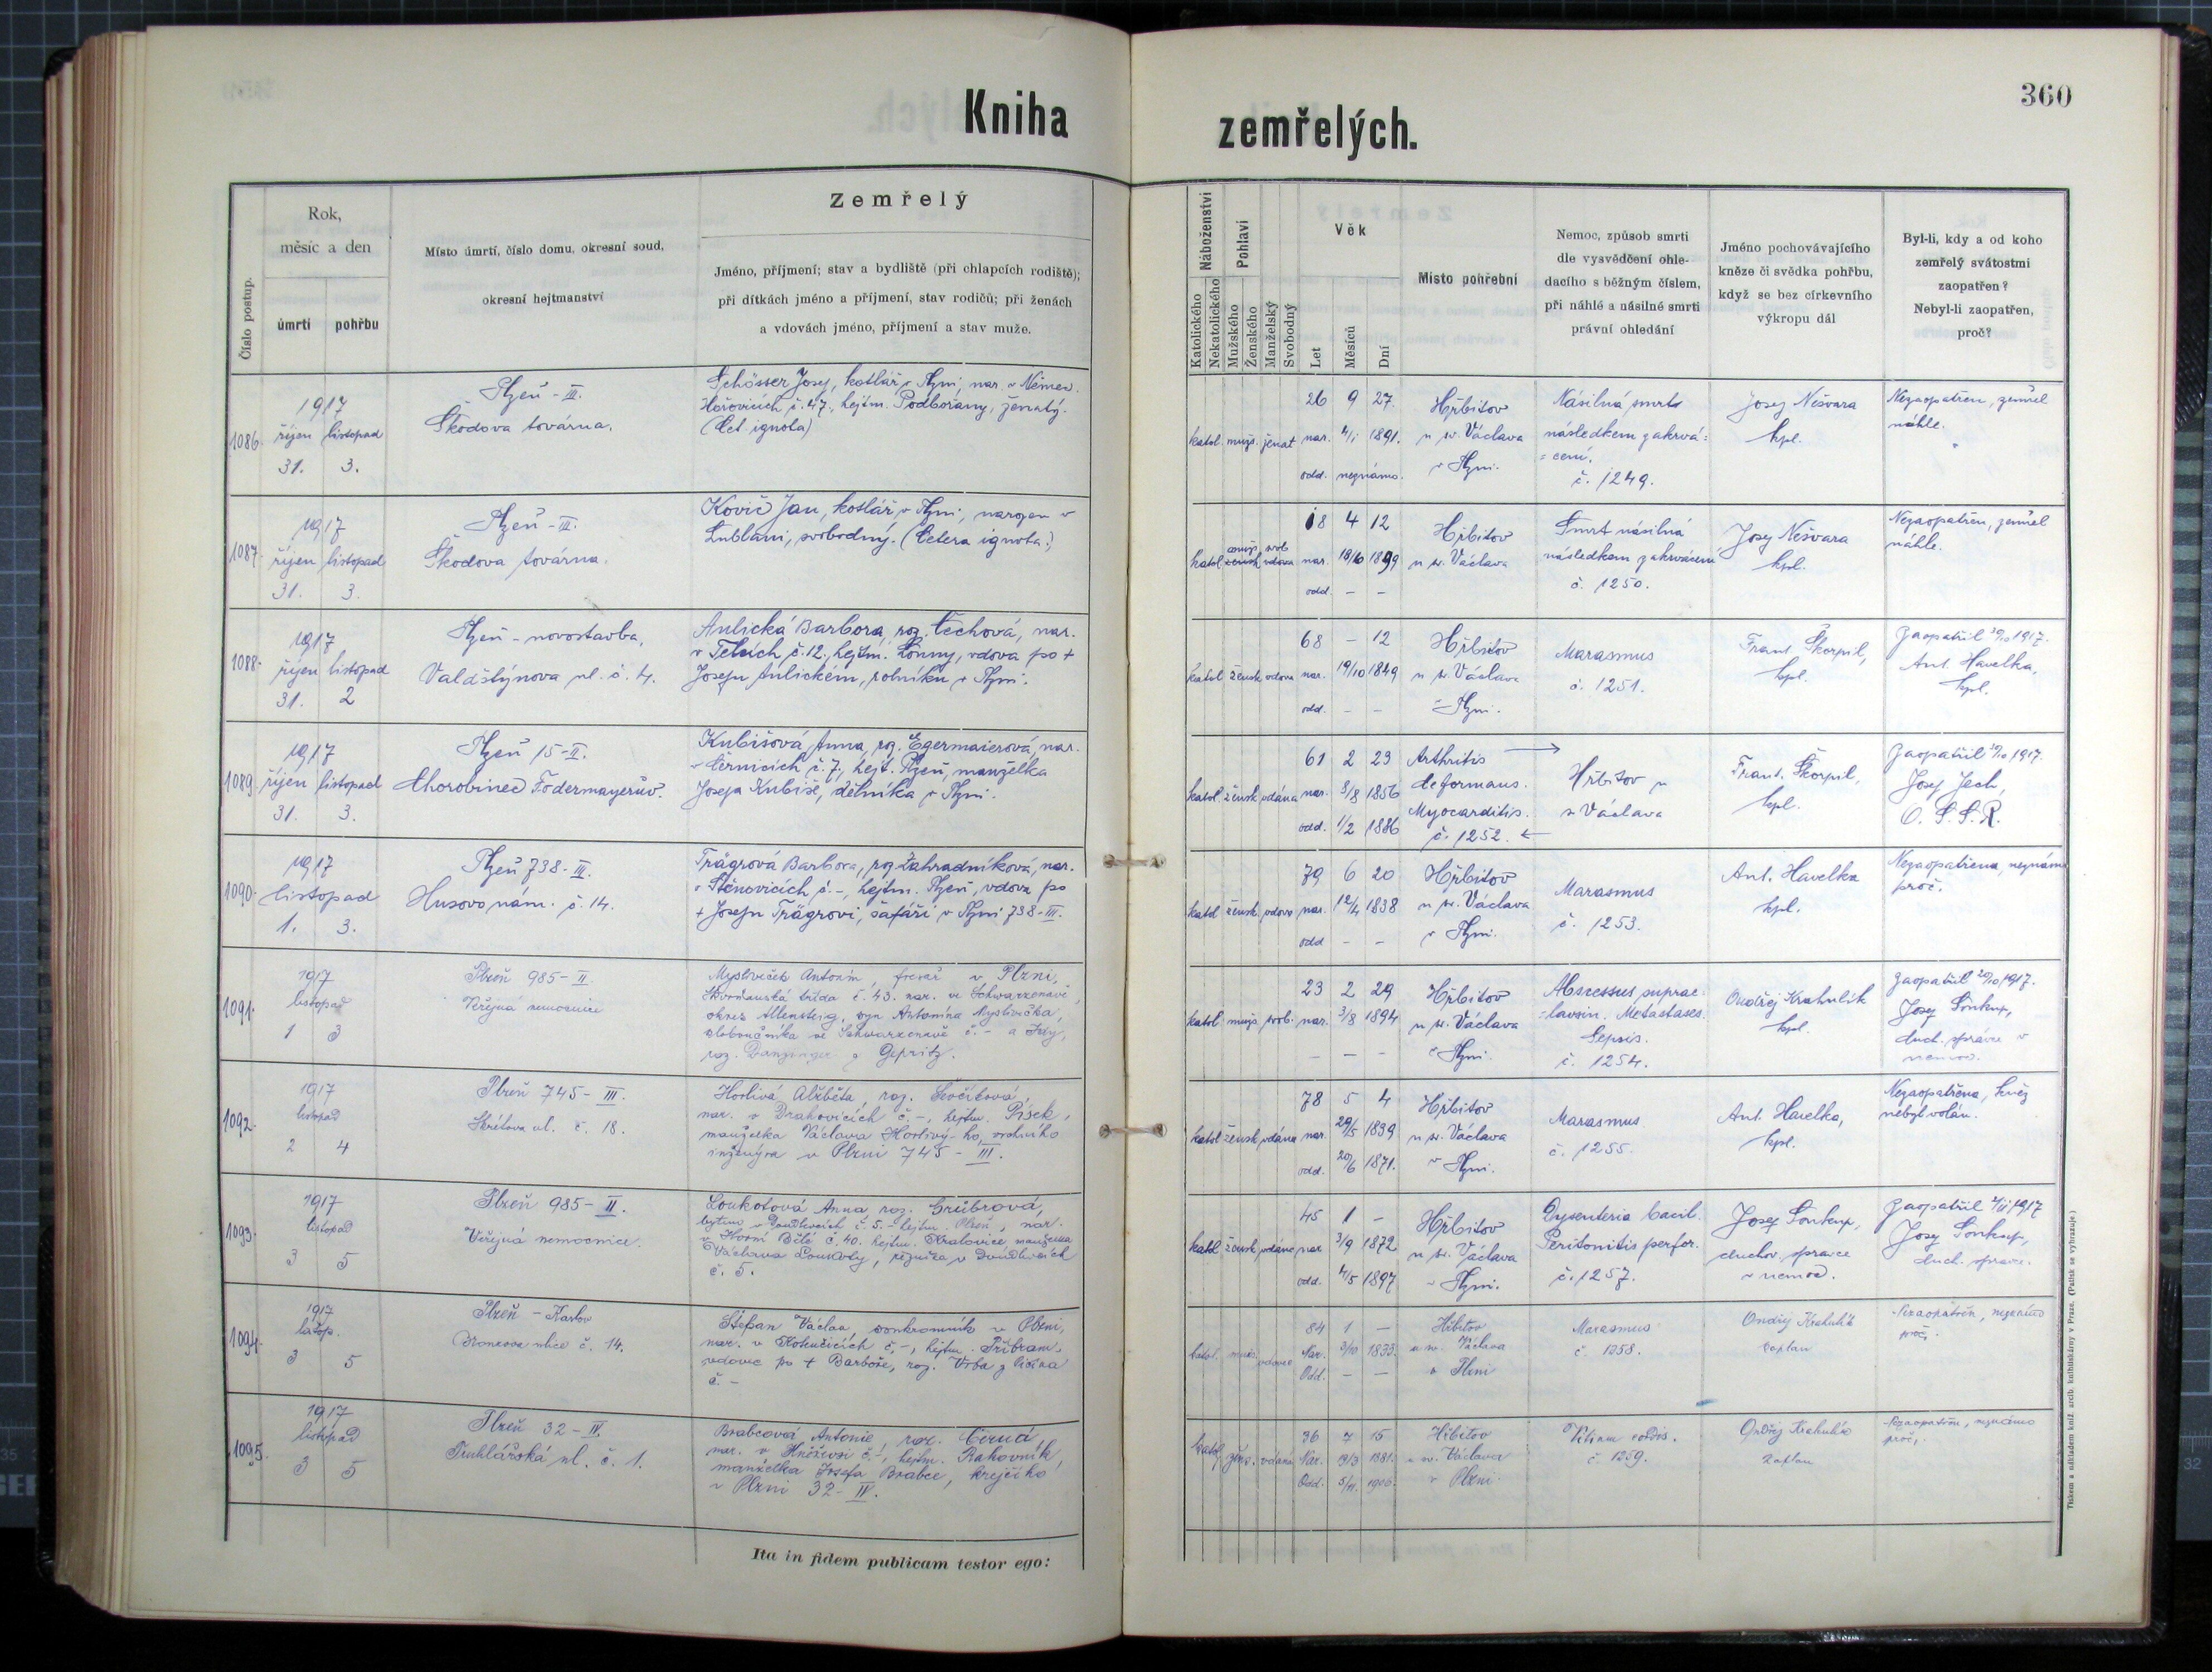 Kniha zemřelých.
360
Číslo postup.
Rok,
měsíc a den
úmrtí
pohřbu
Místo úmrtí, číslo domu, okresní soud,
okresní hejtmanství
Zemřelý
Jméno, příjmení; stav a bydliště (při chlapcích rodiště);
při dítkách jméno a příjmení, stav rodičů; při ženách
a vdovách jméno, příjmení a stav muže.
Náboženství
Katolického
Nekatolického
Pohlaví
Mužského
Ženského
Manželský
Svobodný
Věk
Let
Měsíců
Dní
Místo pohřební
Nemoc, způsob smrti
dle vysvědčení ohle-
dacího s běžným číslem,
při náhlé a násilné smrti
právní ohledání
Jméno pochovávajícího
kněze či svědka pohřbu,
když se bez církevního
výkropu dál
Byl-li, kdy a od koho
zemřelý svátostmi
zaopatřen?
Nebyl-li zaopatřen,
proč?
1086.
1917
říjen listopad
31. 3.
Plzeň - III.
Škodova továrna.
Schösser Josef, kotlář v Plzni, nar. v Němec.
Hořovicích č. 47., hejtm. Podbořany, ženatý.
(Cet. ignota)
katol. muž. ženat
26 9 27.
nar. 4/1 1891.
odd. neznámo.
Hřbitov
u sv. Václava
v Plzni.
Násilná smrt
následkem zakrvá=
=cení.
č. 1249.
Josef Nešvara
kpl.
Nezaopatřen, zemřel
náhle.
1087.
1917
říjen listopad
31. 3.
Plzeň - III.
Škodova továrna.
Kovič Jan, kotlář v Plzni, narozen v
Lublani, svobodný. (Cetera ignota.)
katol. muž. svob.
žensk. vdova
18 4 12
nar. 18/6 1899
odd. - -
Hřbitov
u sv. Václava
Smrt násilná
následkem zakrvácení
č. 1250.
Josef Nešvara
kpl.
Nezaopatřen, zemřel
náhle.
1088.
1917
říjen listopad
31. 2
Plzeň - novostavba,
Valdštýnova ul. č. 4.
Aulická Barbora, roz. Čechová, nar.
v Telcích č. 12., hejtm. Louny, vdova po +
Josefu Aulickém, rolníku v Plzni.
katol. žensk. vdova
68 - 12
nar. 19/10 1849
odd. - -
Hřbitov
u sv. Václava
v Plzni.
Marasmus
č. 1251.
Frant. Škorpil,
kpl.
Zaopatřil 30/10 1917.
Ant. Havelka,
kpl.
1089.
1917
říjen listopad
31. 3.
Plzeň 15-II.
Chorobinec Fodermayerův.
Kubišová Anna, roz. Egermaierová, nar.
v Černicích č. 7., hejt. Plzeň, manželka
Josefa Kubiše, dělníka v Plzni.
katol. žensk. vdána
61 2 23
nar. 8/8 1856
odd. 1/2 1886
Arthritis →
deformans.
Myocarditis.
č. 1252. ←
Hřbitov u
sv. Václava
Frant. Škorpil,
kpl.
Zaopatřil 30/10 1917.
Josef Jech,
C. S. S. R.
1090.
1917
listopad
1. 3.
Plzeň 738-III.
Husovo nám. č. 14.
Trägrová Barbora, roz. Zahradníková, nar.
v Štěnovicích č. -, hejtm. Plzeň, vdova po
+ Josefu Trägrovi, šafáři v Plzni 738-III.
katol. žensk. vdova
79 6 20
nar. 12/4 1838
odd - -
Hřbitov
u sv. Václava
v Plzni.
Marasmus
č. 1253.
Ant. Havelka
kpl.
Nezaopatřena, neznámo
proč.
1091.
1917
listopad
1 3
Plzeň 985-II
Veřejná nemocnice
Mysliveček Antonín, frézař v Plzni,
třída č. 43. nar. ve Schwarzenavě,
okres Allensteig, syn Antonína Myslivečka,
ve Schwarzenavě č. - a Idy,
roz. Danzinger z Gepritz.
katol. muž. svob.
23 2 29
nar. 3/8 1894
- - -
Hřbitov
u sv. Václava
v Plzni.
Abscessus suprac=
=lavin. Metastases.
Sepsis.
č. 1254.
Ondřej Krahulík
kpl.
Zaopatřil 29/10 1917.
Josef Soukup,
duch. správce v
nemoc.
1092.
1917
listopad
2 4
Plzeň 745-III.
Skrétova ul. č. 18.
Horlivá Alžběta, roz. Ševčíková,
nar. v Drahovicích č -, hejtm. Písek,
manželka Václava Horlivý-ho, vrchního
inženýra v Plzni 745-III.
katol. žensk. vdána
78 5 4
nar. 29/5 1839
odd. 20/6 1871.
Hřbitov
u sv. Václava
v Plzni.
Marasmus
č. 1255.
Ant. Havelka,
kpl.
Nezaopatřena, kněz
nebyl volán.
1093.
1917
listopad
3 5
Plzeň 985-II.
Veřejná nemocnice.
Loukotová Anna roz. Grübrová,
bytem v Doudlevcích č. 5. - hejtm. Plzeň, nar.
v Horní Bělé č. 40. hejtm. Kralovice, manželka
Václava Loukoty, řezníka v Doudlevcích
č. 5.
katol. žensk. vdána
45 1 -
nar. 3/9 1872
odd. 4/5 1897
Hřbitov
u sv. Václava
v Plzni.
Dysenteria bacil.
Peritonitis perfor.
č. 1257.
Josef Soukup,
duchov. správce
v nemoc.
Zaopatřil 2/11 1917
Josef Soukup,
duch. správce.
1094.
1917
listop.
3 5
Plzeň - Karlov
Bronzova ulice č. 14.
Štěpan Václav, soukromník v Plzni,
nar. v č. -, hejtm. Příbram.
vdovec po + Barboře, roz. Vrba z
č. -
katol. muž. vdovec
84 1 -
Nar. 3/10 1833.
Odd. - -
Hřbitov
u sv. Václava
v Plzni
Marasmus
č. 1258.
Ondřej Krahulík
kaplan
Nezaopatřen, neznámo
proč.
1095.
1917
listopad
3 5
Plzeň 32-IV.
Truhlářská ul. č. 1.
Brabcová Antonie roz. Černá,
nar. v Kněževsi č. -, hejtm. Rakovník,
manželka Josefa Brabce, krejčího
v Plzni 32-IV.
katol. žens. vdaná
36 7 15
Nar. 19/3 1881.
Odd. 5/11. 1906.
Hřbitov
u sv. Václava
v Plzni
Vitium cordis.
č. 1259.
Ondřej Krahulík
kaplan
Nezaopatřen, neznámo
proč.
Ita in fidem publicam testor ego:
Tiskem a nákladem kníž. arcib. knihtiskárny v Praze. (Patisk se vyhrazuje.)